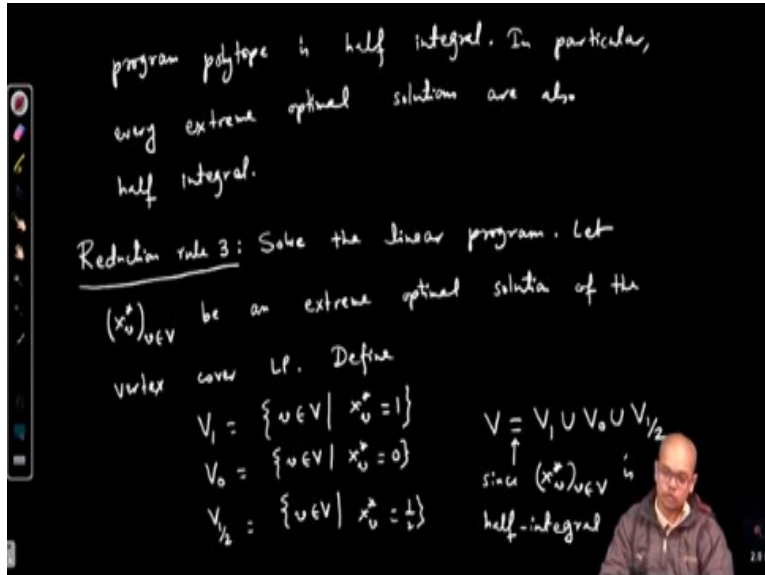 program polytope is half integral. In particular,
every extreme optimal solutions are also
half integral.
Reduction rule 3: Solve the linear program. Let
(x*_v)_{v∈V} be an extreme optimal solution of the
vertex cover LP. Define
V_1 = {v∈V | x*_v = 1}
V_0 = {v∈V | x*_v = 0}
V_{1/2} = {v∈V | x*_v = 1/2}
V = V_1 ∪ V_0 ∪ V_{1/2}
↑
since (x*_v)_{v∈V} is
half-integral